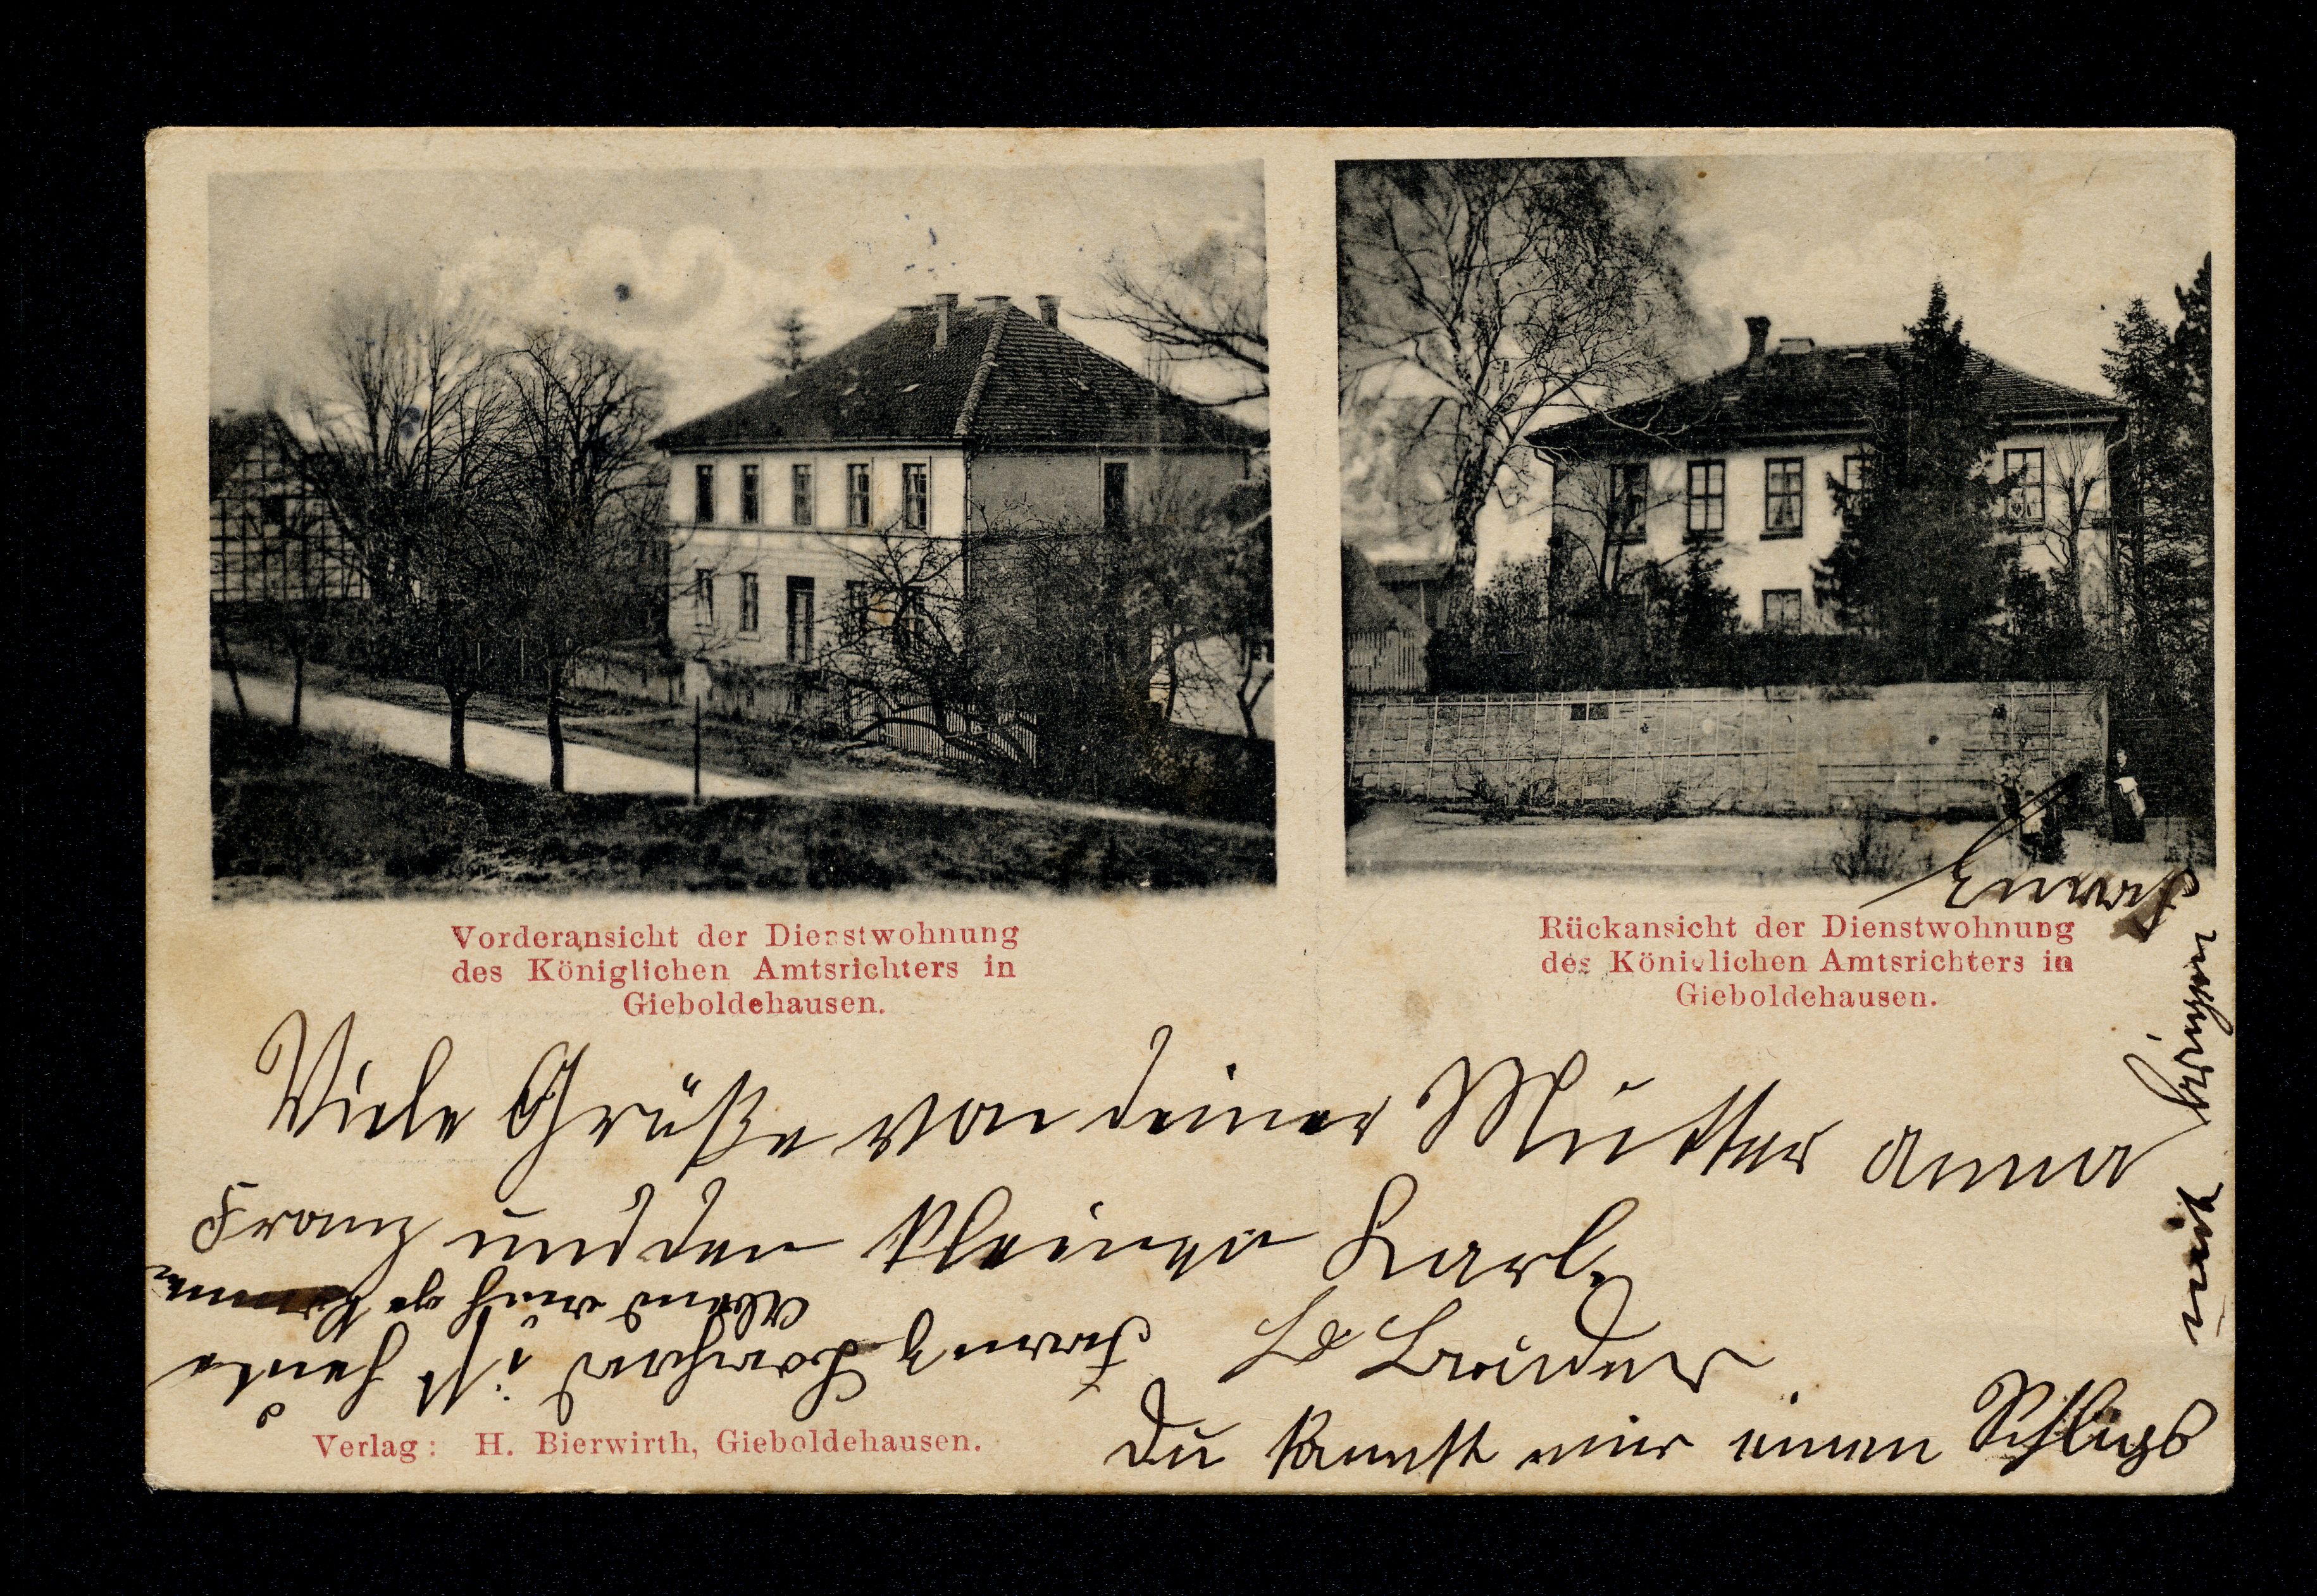 Vorderansicht der Dienstwohnung
des Königlichen Amtsrichters in
Gieboldehausen.
Rückansicht der Dienstwohnung
des Königlichen Amtsrichters in
Gieboldehausen.
Viele Grüße von deiner Mutter Anna
Franz und den kleinen Karl.
Lb Bruder
Du kannst mir einen Schlips
mit bringen
Franz
Franz ist heute
Abend
Verlag: H. Bierwirth, Gieboldehausen.